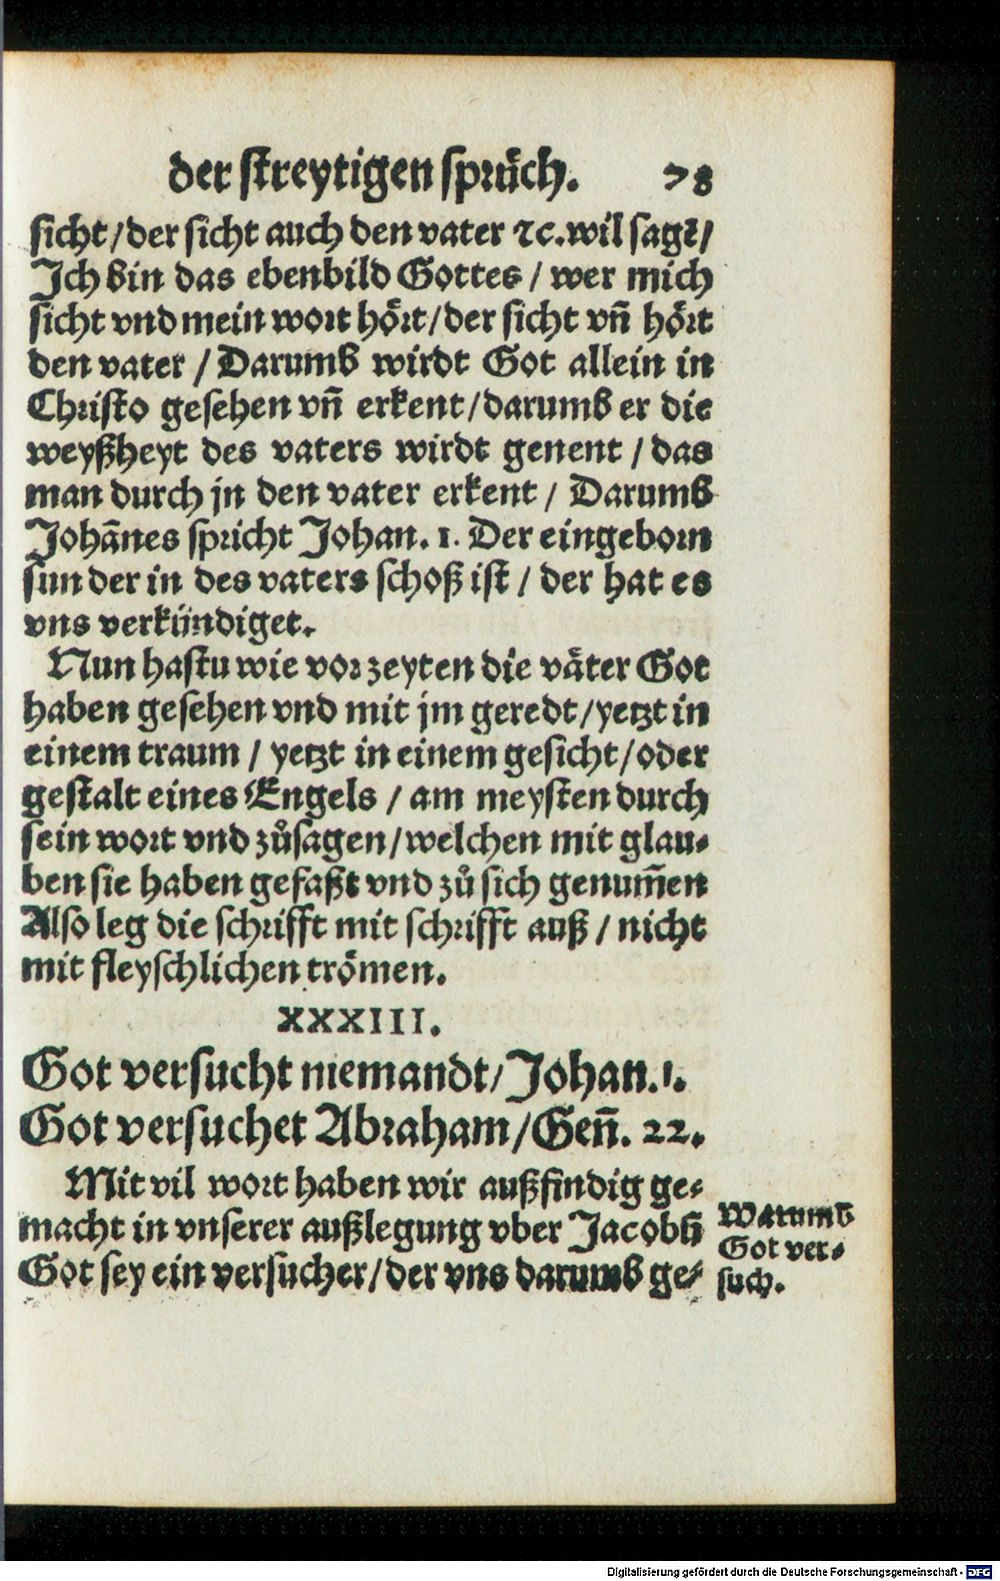 der streytigen sprüch. 78
sicht/der sicht auch den vater ꝛc.wil sagē/
Ich bin das ebenbild Gottes / wer mich
sicht vnd mein wort hört/der sicht vñ hört
den vater / Darumb wirdt Got allein in
Christo gesehen vñ erkent/darumb er die
weyßheyt des vaters wirdt genent / das
man durch jn den vater erkent / Darumb
Johānes spricht Johan. 1. Der eingeborn
sun der in des vaters schoß ist / der hat es
vns verkündiget.
Nun hastu wie vor zeyten die väter Got
haben gesehen vnd mit jm geredt/yetzt in
einem traum / yetzt in einem gesicht/oder
gestalt eines Engels / am meysten durch
sein wort vnd zůsagen/welchen mit glau-
ben sie haben gefaßt vnd zů sich genum̄en
Also leg die schrifft mit schrifft auß / nicht
mit fleyschlichen trömen.
XXXIII.
Got versucht niemandt/Johan.1.
Got versuchet Abraham/Geñ. 22.
Mit vil wort haben wir außfindig ge-
macht in vnserer außlegung vber Jacobū
Got sey ein versucher/der vns darumb ge-
Warumb
Got ver-
such.
Digitalisierung gefördert durch die Deutsche Forschungsgemeinschaft - DFG